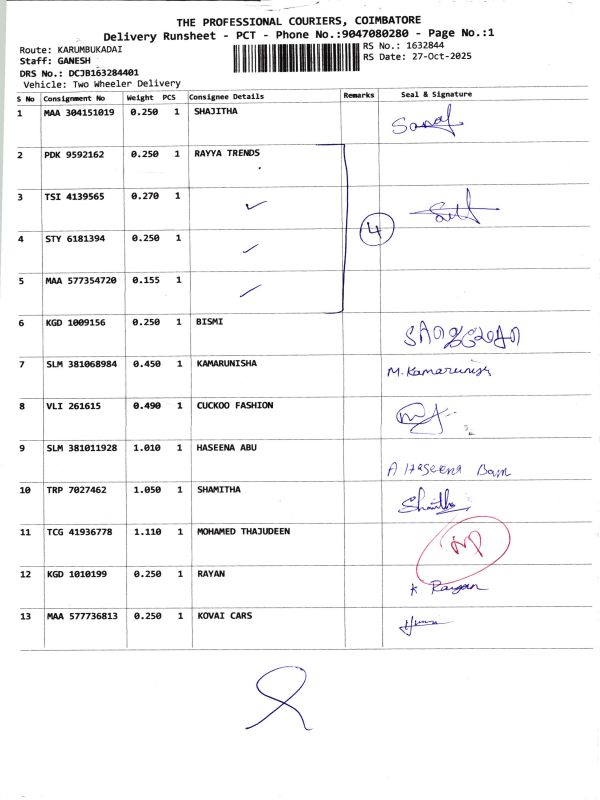 THE PROFESSIONAL COURIERS, COIMBATORE
Delivery Runsheet - PCT - Phone No.:9047080280 - Page No.:1
Route: KARUMBUKADAI
RS No.: 1632844
Staff: GANESH
RS Date: 27-Oct-2025
DRS No.: DCJB163284401
Vehicle: Two Wheeler Delivery
S No Consignment No Weight PCS Consignee Details Remarks Seal & Signature
1 MAA 304151019 0.250 1 SHAJITHA
2 PDK 9592162 0.250 1 RAYYA TRENDS
3 TSI 4139565 0.270 1
4
4 STY 6181394 0.250 1
5 MAA 577354720 0.155 1
6 KGD 1009156 0.250 1 BISMI
7 SLM 381068984 0.450 1 KAMARUNISHA M.Kamarunish
8 VLI 261615 0.490 1 CUCKOO FASHION
9 SLM 381011928 1.010 1 HASEENA ABU A Haseena
10 TRP 7027462 1.050 1 SHAMITHA
11 TCG 41936778 1.110 1 MOHAMED THAJUDEEN
12 KGD 1010199 0.250 1 RAYAN
13 MAA 577736813 0.250 1 KOVAI CARS